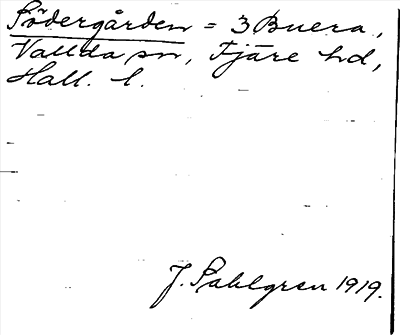 Södergården = 3 Buera,
Vallda sn, Fjäre hd,
Hall. l.
J. Sahlgren 1919.